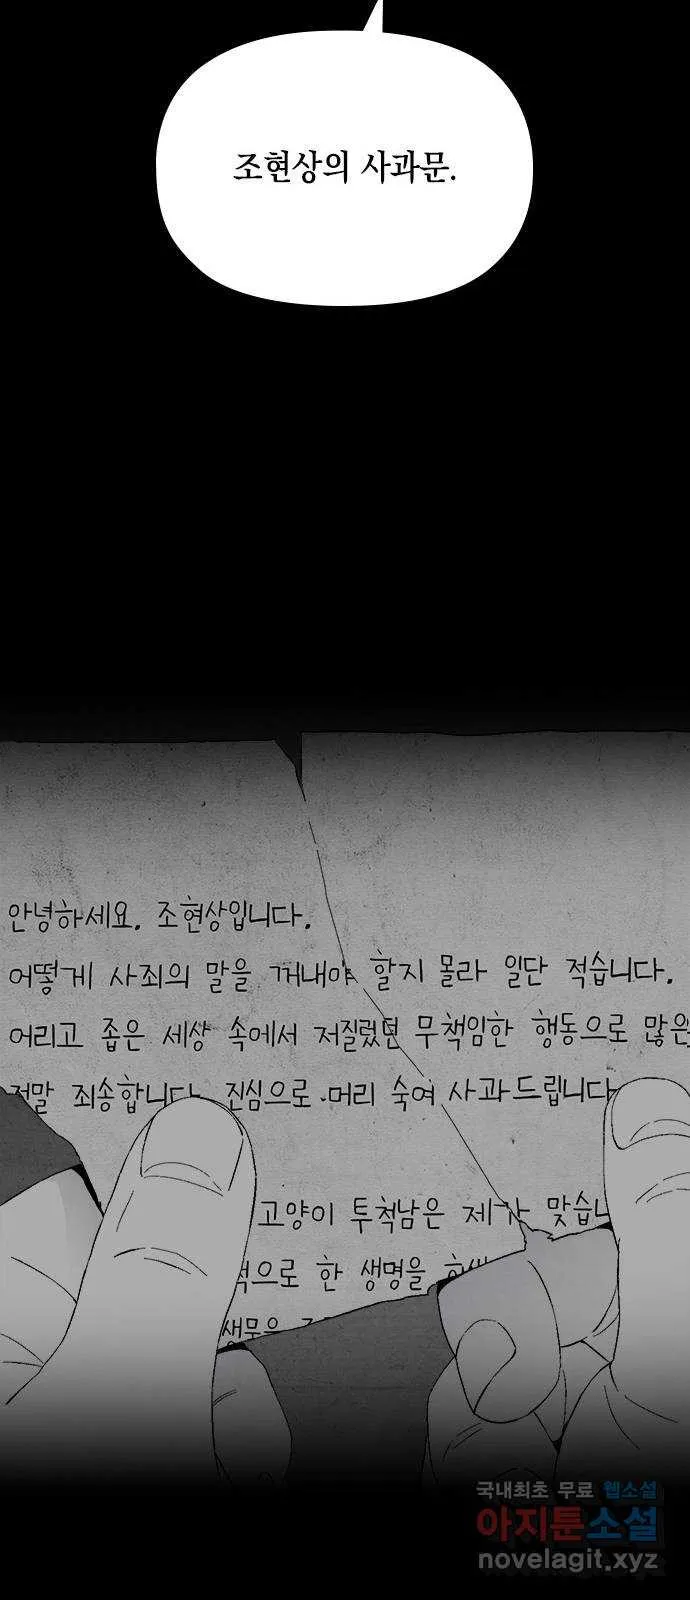 조현상의 사과문.
안녕하세요. 조현상입니다.
어떻게 사죄의 말을 꺼내야 할지 몰라 일단 적습니다.
어리고 좁은 세상 속에서 저질렀던 무책임한 행동으로 많은
정말 죄송합니다. 진심으로 머리 숙여 사과드립니다
고양이 투척남은 제가 맞습니
적으로 한 생명을
생목숨
국내최초 무료 웹소설
아지툰소설
novelagit.xyz